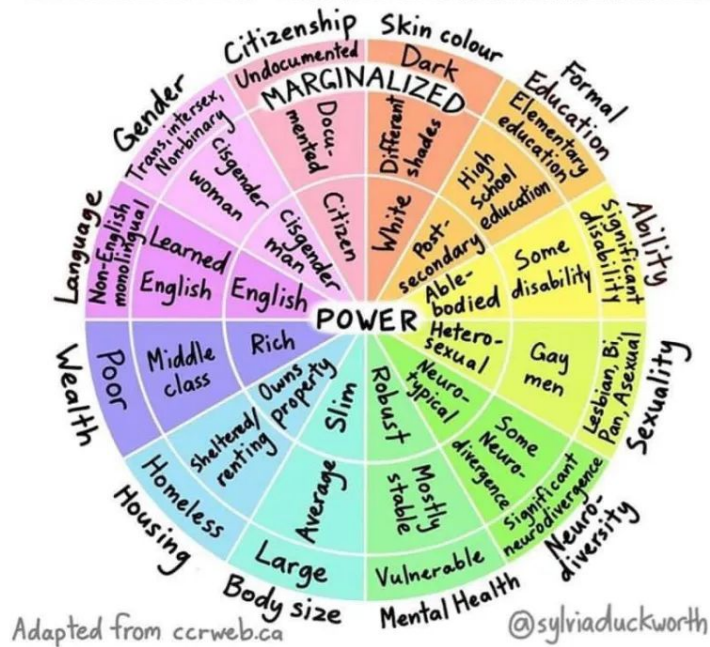 Citizenship
Undocumented
Docu-
mented
Citizen
Skin colour
Dark
Different
shades
White
Formal
Education
Elementary
education
High
School
education
Post-
secondary
Ability
Significant
disability
Some
disability
Able-
bodied
Sexuality
Lesbian, Bi,
Pan, Asexual
Gay
men
Hetero-
sexual
Neuro-
diversity
Significant
neurodivergence
Some
Neuro-
divergence
Neuro-
typical
Mental Health
Vulnerable
Mostly
stable
Robust
Body size
Large
Average
Slim
Housing
Homeless
Sheltered/
renting
Owns
property
Wealth
Poor
Middle
class
Rich
Language
Non-English
monolingual
Learned
English
English
Gender
Trans, intersex,
Non-binary
Cisgender
woman
cisgender
man
MARGINALIZED
POWER
Adapted from ccrweb.ca
@sylviaduckworth